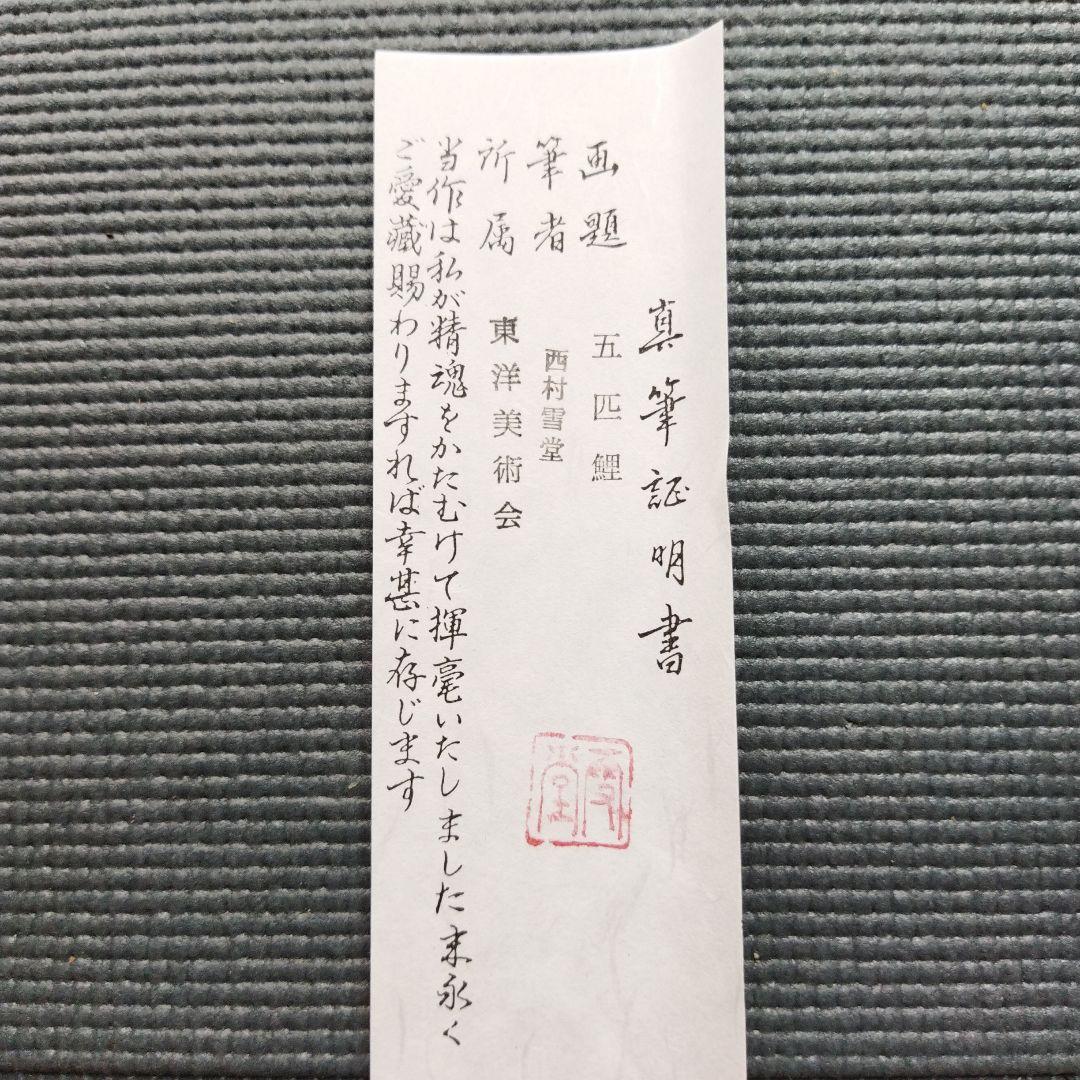 真筆証明書
画題 五匹鯉
筆者 西村雪堂
所属 東洋美術会
当作は私が精魂をかたむけて揮毫いたしました末永く
ご愛藏賜わりますれば幸甚に存じます
雪堂